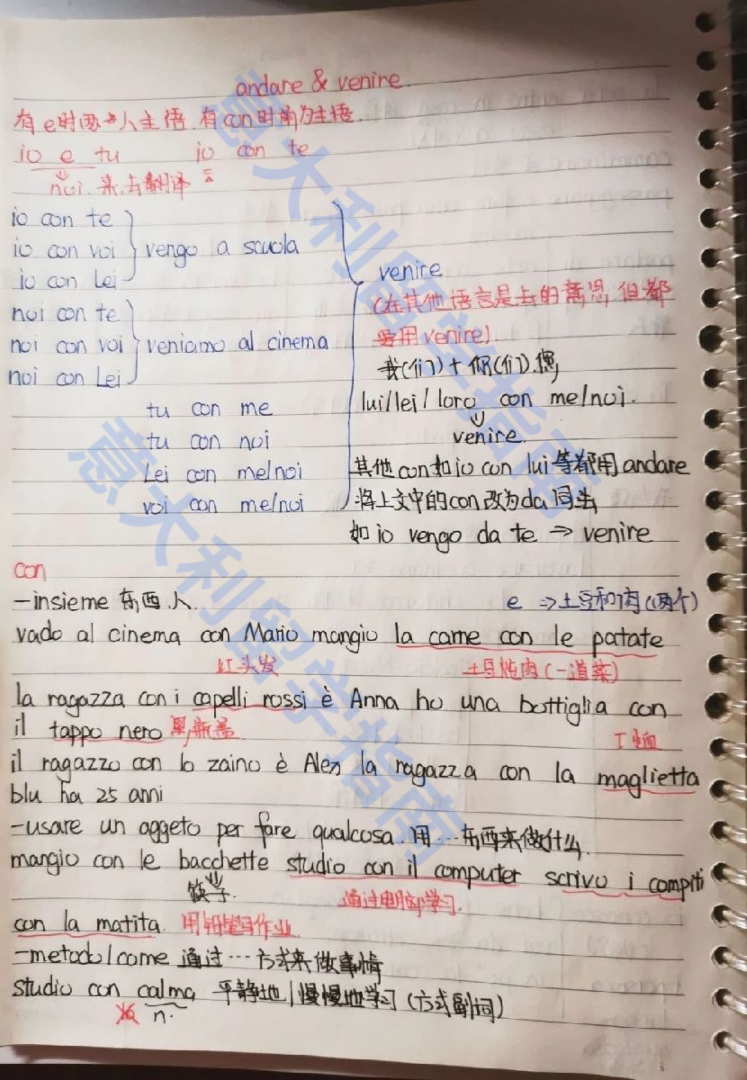 andare & venire.
有e时两个人主语.有con时前为主语.
io e tu io con te
noi. 来.去翻译
io con te
io con voi vengo a scuola
io con Lei
noi con te
noi con voi veniamo al cinema
noi con Lei
tu con me
tu con noi
Lei con me/noi
voi con me/noi
venire
(在其他语言是去的意思,但都
要用venire).
我(们)+你(们).您,
lui/lei/loro con me/noi.
venire.
其他con如io con lui等都用andare
将上文中的con改为da同生
如io vengo da te ⇒ venire
con
-insieme 东西.人. e ⇒土豆和肉(两个)
vado al cinema con Mario mangio la carne con le patate
红头发 土豆炖肉(一道菜)
la ragazza con i capelli rossi è Anna ho una bottiglia con
il tappo nero 黑瓶盖 T恤
il ragazzo con lo zaino è Alex la ragazza con la maglietta
blu ha 25 anni
-usare un aggeto per fare qualcosa.用…东西来做什么.
mangio con le bacchette studio con il computer scrivo i compiti
筷子. 通过电脑学习.
con la matita. 用铅笔写作业
-metodo/come 通过…方式来做事情
studio con calma 平静地/慢慢地学习(方式副词)
n.
意大利留学指南
意大利留学指南